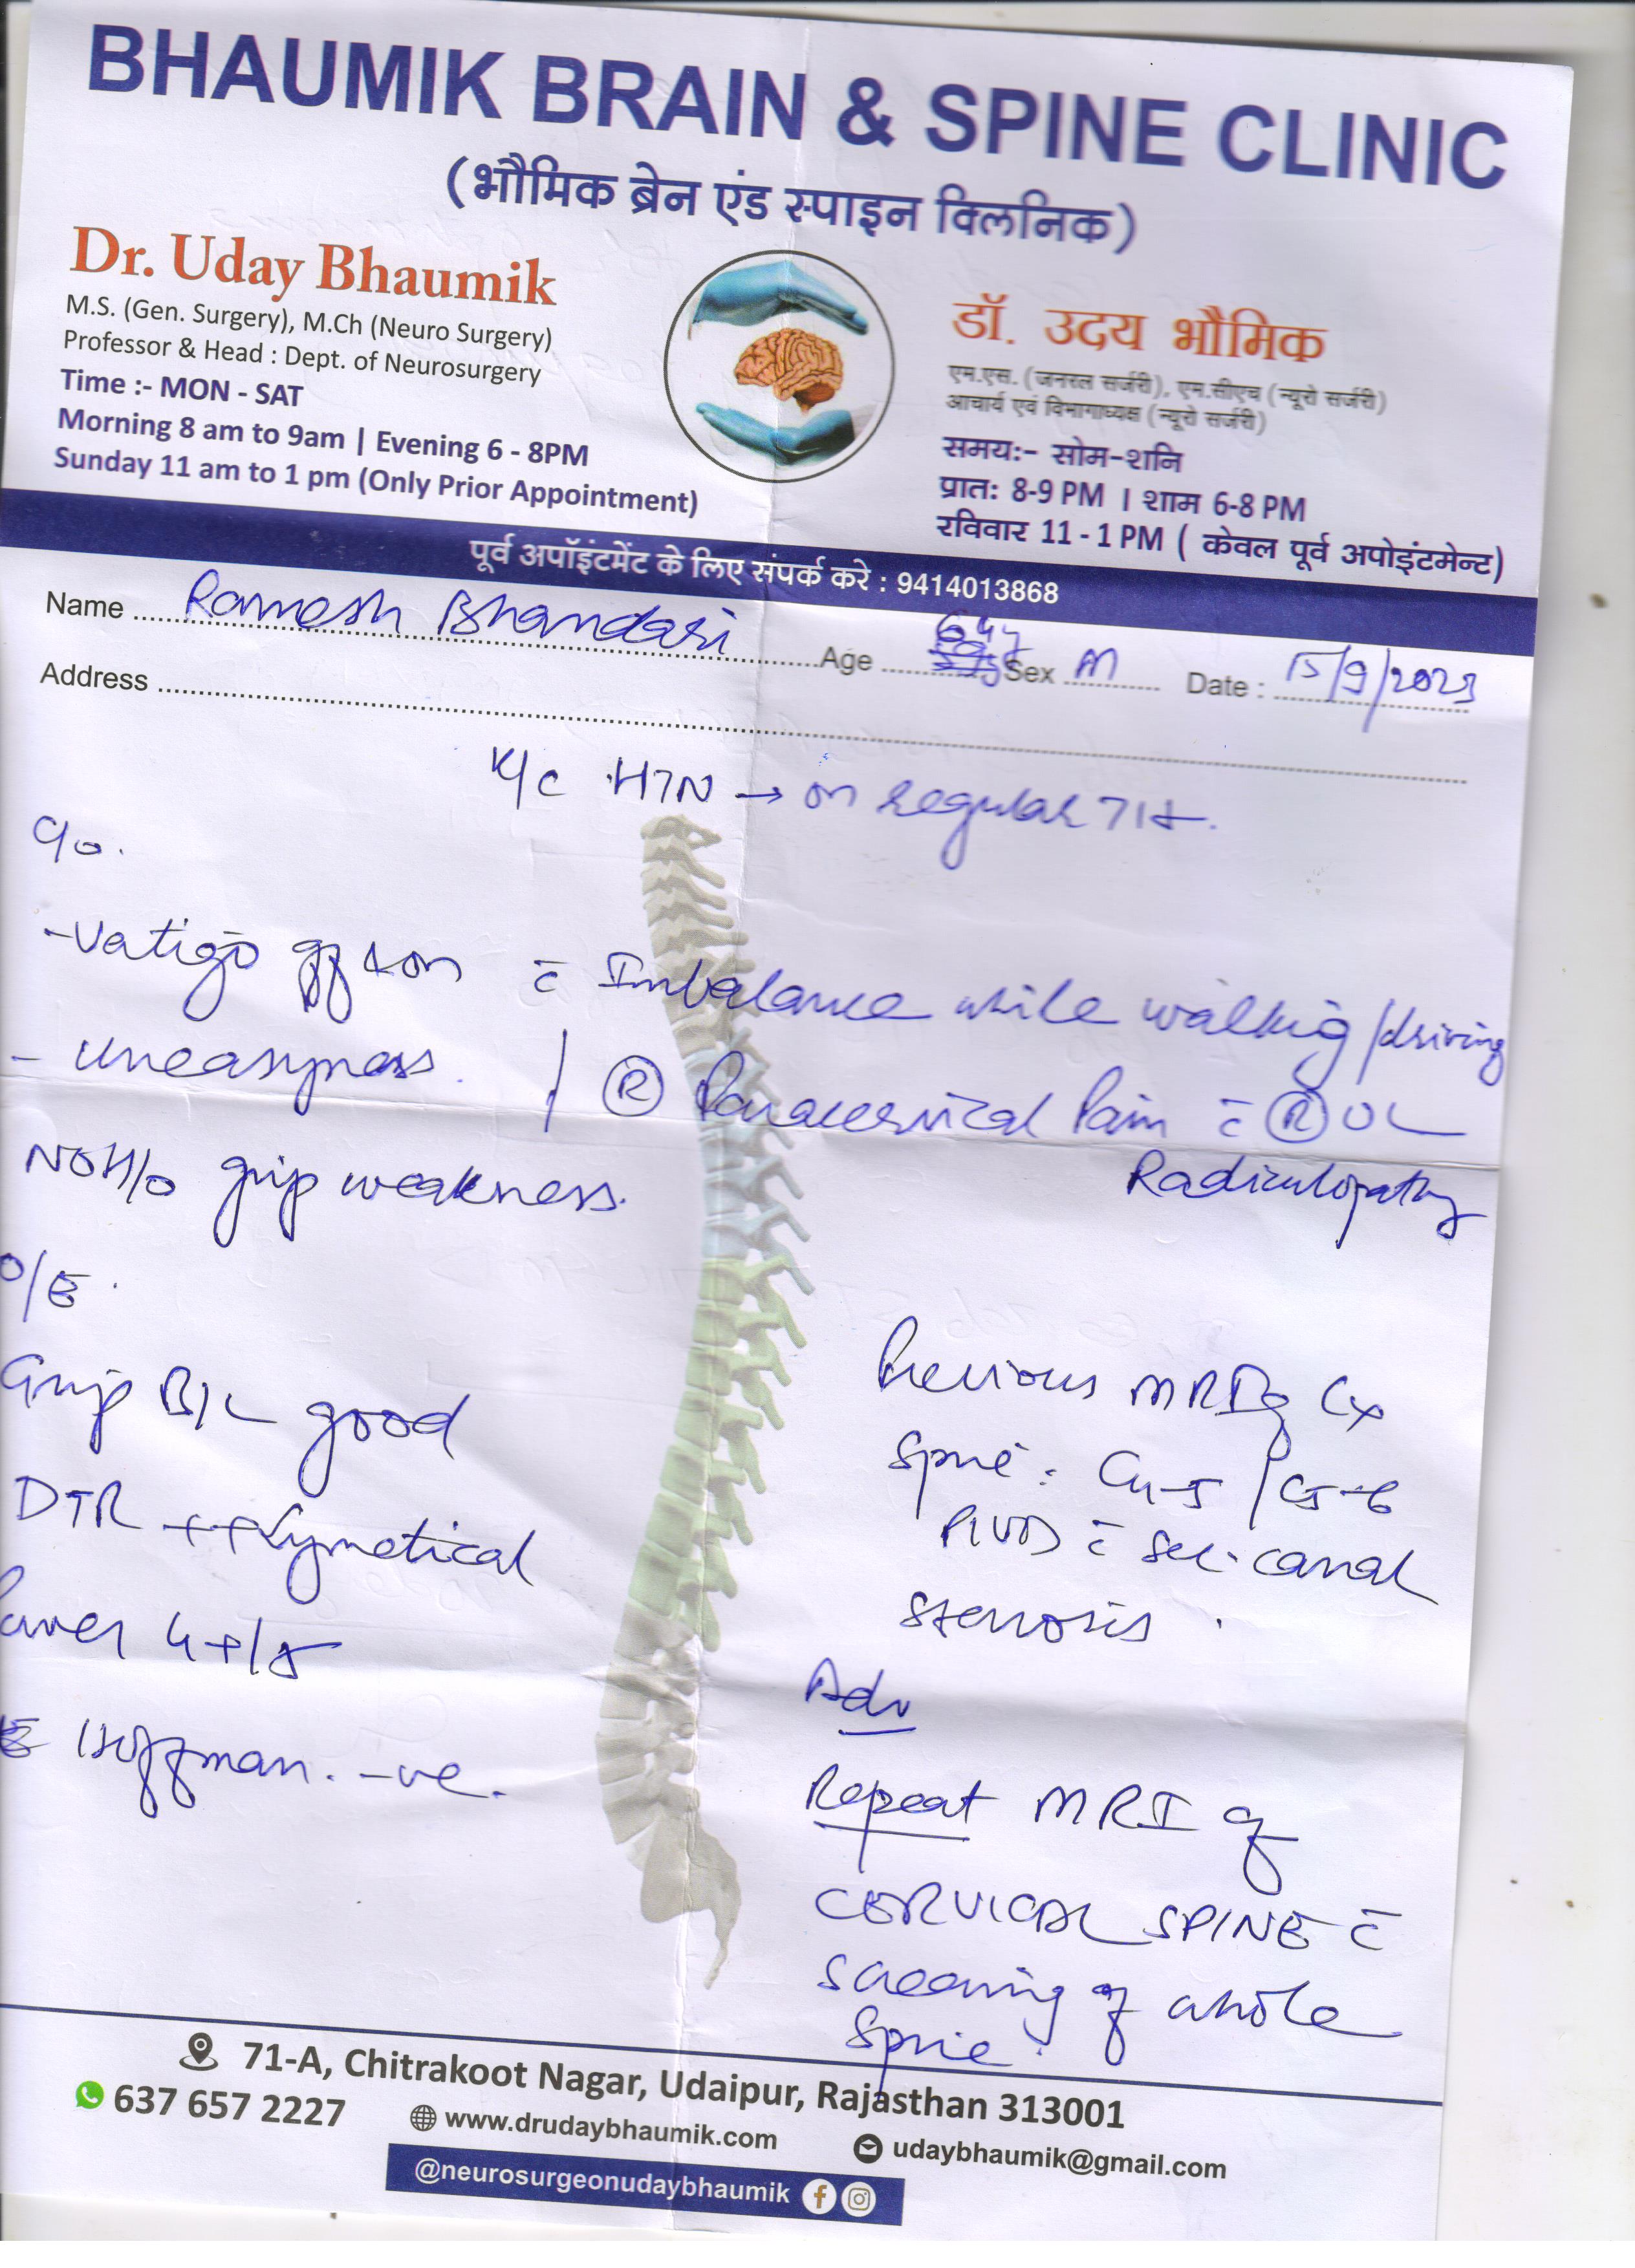 BHAUMIK BRAIN & SPINE CLINIC
(भौमिक ब्रेन एंड स्पाइन क्लिनिक)
Dr. Uday Bhaumik
M.S. (Gen. Surgery), M.Ch (Neuro Surgery)
Professor & Head : Dept. of Neurosurgery
Time :- MON - SAT
Morning 8 am to 9am | Evening 6 - 8PM
Sunday 11 am to 1 pm (Only Prior Appointment)
डॉ. उदय भौमिक
एम.एस. (जनरल सर्जरी), एम.सीएच (न्यूरो सर्जरी)
आचार्य एवं विभागाध्यक्ष (न्यूरो सर्जरी)
समय:- सोम-शनि
प्रात: 8-9 PM । शाम 6-8 PM
रविवार 11 - 1 PM ( केवल पूर्व अपोइंटमेन्ट)
पूर्व अपॉइंटमेंट के लिए संपर्क करे : 9414013868
Name Ramesh Bhandari Age 64y Sex M Date : 15/9/2023
Address
K/C HTN → on regular
C/o.
- Vertigo on c̄ Imbalance while walking/driving
- uneasyness. / Ⓡ Paracervical Pain c̄ Ⓡ UL
Radiculopathy
NO H/o grip weakness.
O/E.
Grip B/L good
DTR ++ Symetical
Power 4+/5
Hoffman. -ve.
Previous MRI of Cx
Spine: C4-5 / C5-6
PIVD c̄ sec. canal
stenosis.
Adv
Repeat MRI of
CERVICAL SPINE c̄
Screening of whole
Spine.
71-A, Chitrakoot Nagar, Udaipur, Rajasthan 313001
637 657 2227 www.drudaybhaumik.com udaybhaumik@gmail.com
@neurosurgeonudaybhaumik